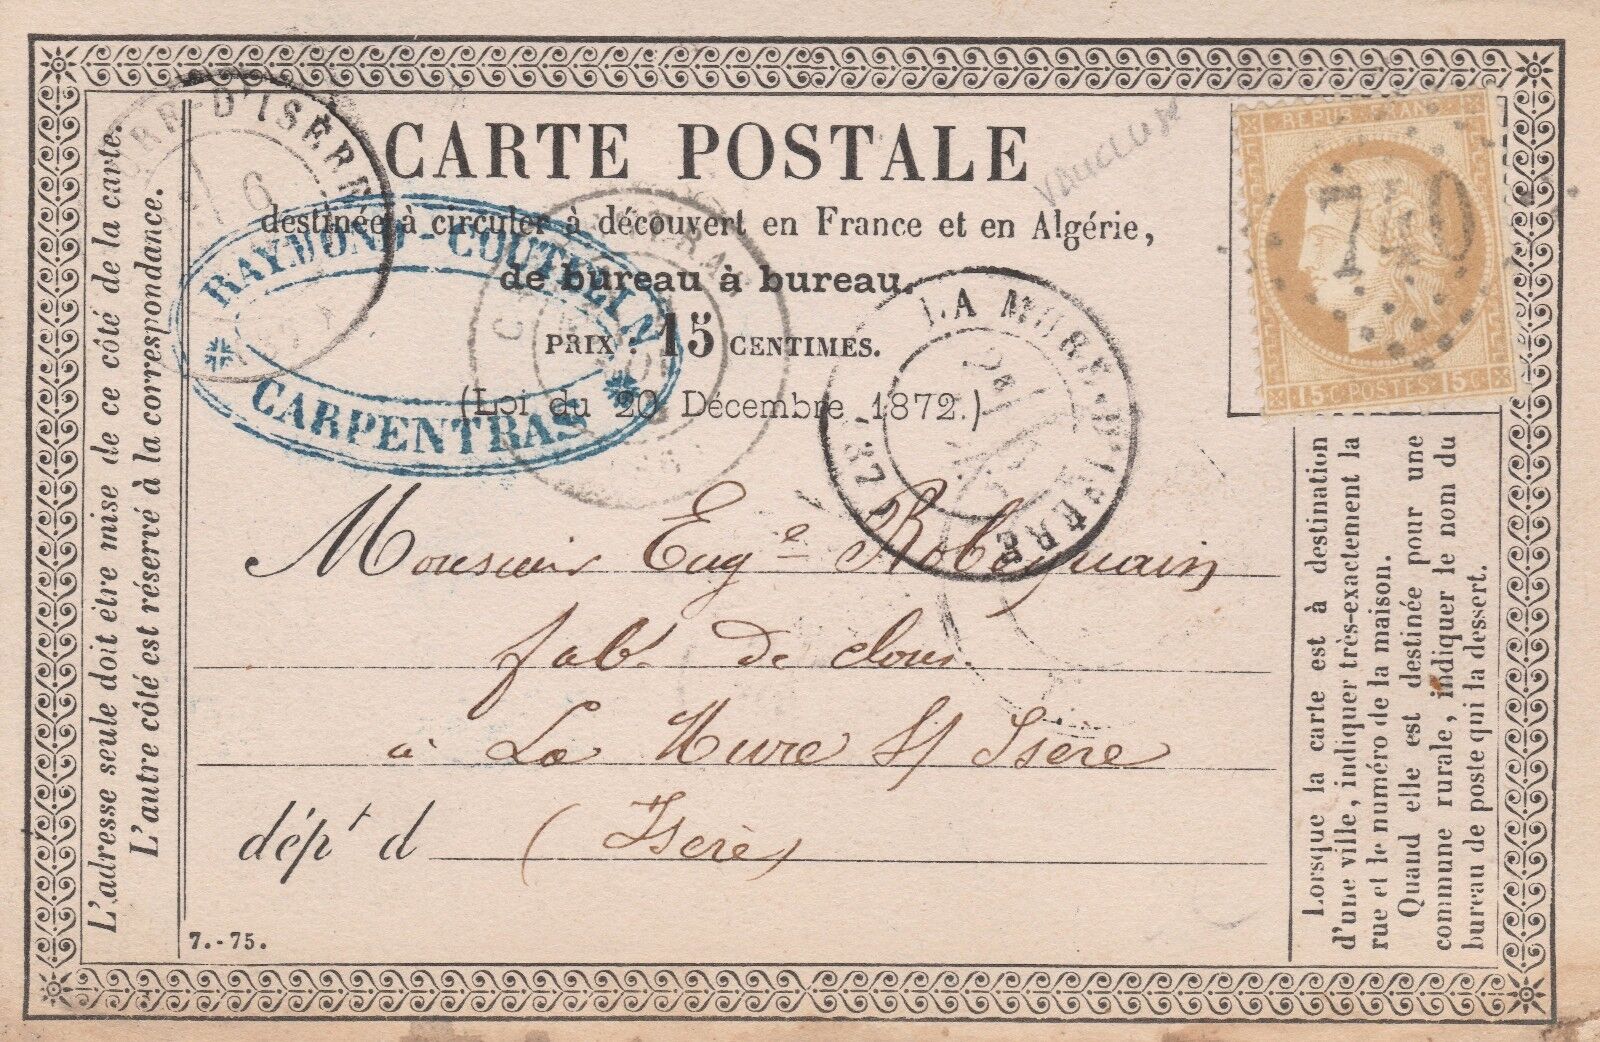 CARTE POSTALE
destinée à circuler à découvert en France et en Algérie,
de bureau à bureau.
PRIX : 15 CENTIMES.
(Loi du 20 Décembre 1872.)
VAUCLUSE
REPUB. FRANC.
15 C. POSTES 15 C.
D'ISÈRE
6
RAYMOND-COUTELIN
CARPENTRAS
LA MURE-D'ISÈRE
Monsieur Euge Robequain
fabt de clous
à La Mure S/ Isère
dépt d (Isère)
7.-75.
L'adresse seule doit être mise de ce côté de la carte.
L'autre côté est réservé à la correspondance.
Lorsque la carte est à destination
d'une ville, indiquer très-exactement la
rue et le numéro de la maison.
Quand elle est destinée pour une
commune rurale, indiquer le nom du
bureau de poste qui la dessert.